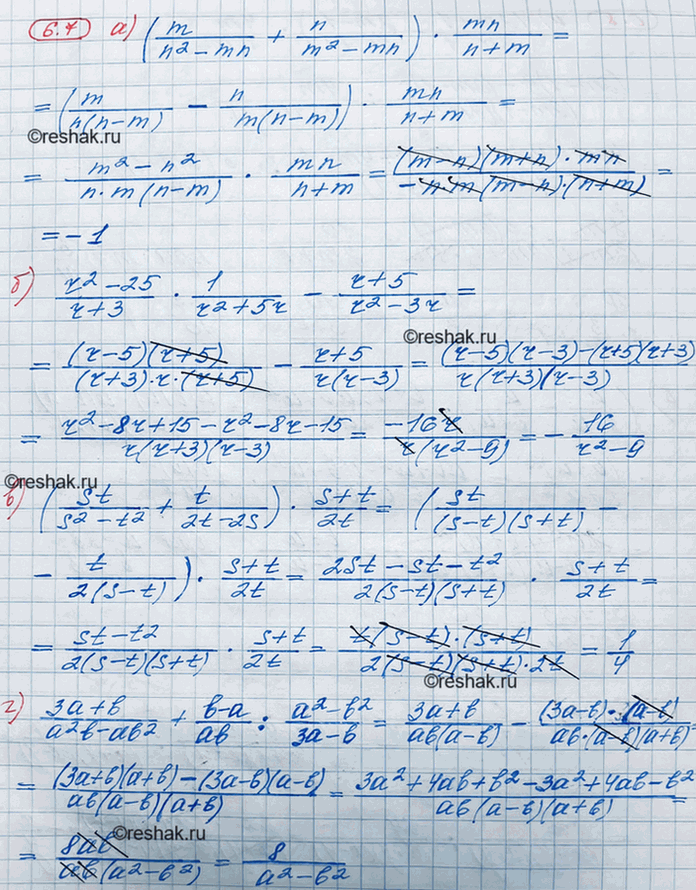 6.7 а) (m/(n² - mn) + n/(m² - mn)) · mn/(n+m) =
= (m/(n(n-m)) - n/(m(n-m))) · mn/(n+m) =
©reshak.ru
= (m² - n²)/(n·m(n-m)) · mn/(n+m) = ((m-n)(m+n)·mn)/(-n·m(m-n)·(n+m)) =
= -1
б) (r² - 25)/(r+3) · 1/(r²+5r) - (r+5)/(r²-3r) =
©reshak.ru
= ((r-5)(r+5))/((r+3)·r·(r+5)) - (r+5)/(r(r-3)) = ((r-5)(r-3)-(r+5)(r+3))/(r(r+3)(r-3))
= (r²-8r+15-r²-8r-15)/(r(r+3)(r-3)) = (-16r)/(r(r²-9)) = -16/(r²-9)
©reshak.ru
в) (st/(s²-t²) + t/(2t-2s)) · (s+t)/2t = (st/((s-t)(s+t)) -
- t/(2(s-t))) · (s+t)/2t = (2st-st-t²)/(2(s-t)(s+t)) · (s+t)/2t =
= (st-t²)/(2(s-t)(s+t)) · (s+t)/2t = (t(s-t)·(s+t))/(2(s-t)(s+t)·2t) = 1/4
©reshak.ru
г) (3a+b)/(a²b-ab²) + (b-a)/ab : (a²-b²)/(3a-b) = (3a+b)/(ab(a-b)) - ((3a-b)·(a-b))/(ab·(a-b)(a+b))
= ((3a+b)(a+b)-(3a-b)(a-b))/(ab(a-b)(a+b)) = (3a²+4ab+b²-3a²+4ab-b²)/(ab(a-b)(a+b)) =
©reshak.ru
= 8ab/(ab(a²-b²)) = 8/(a²-b²)